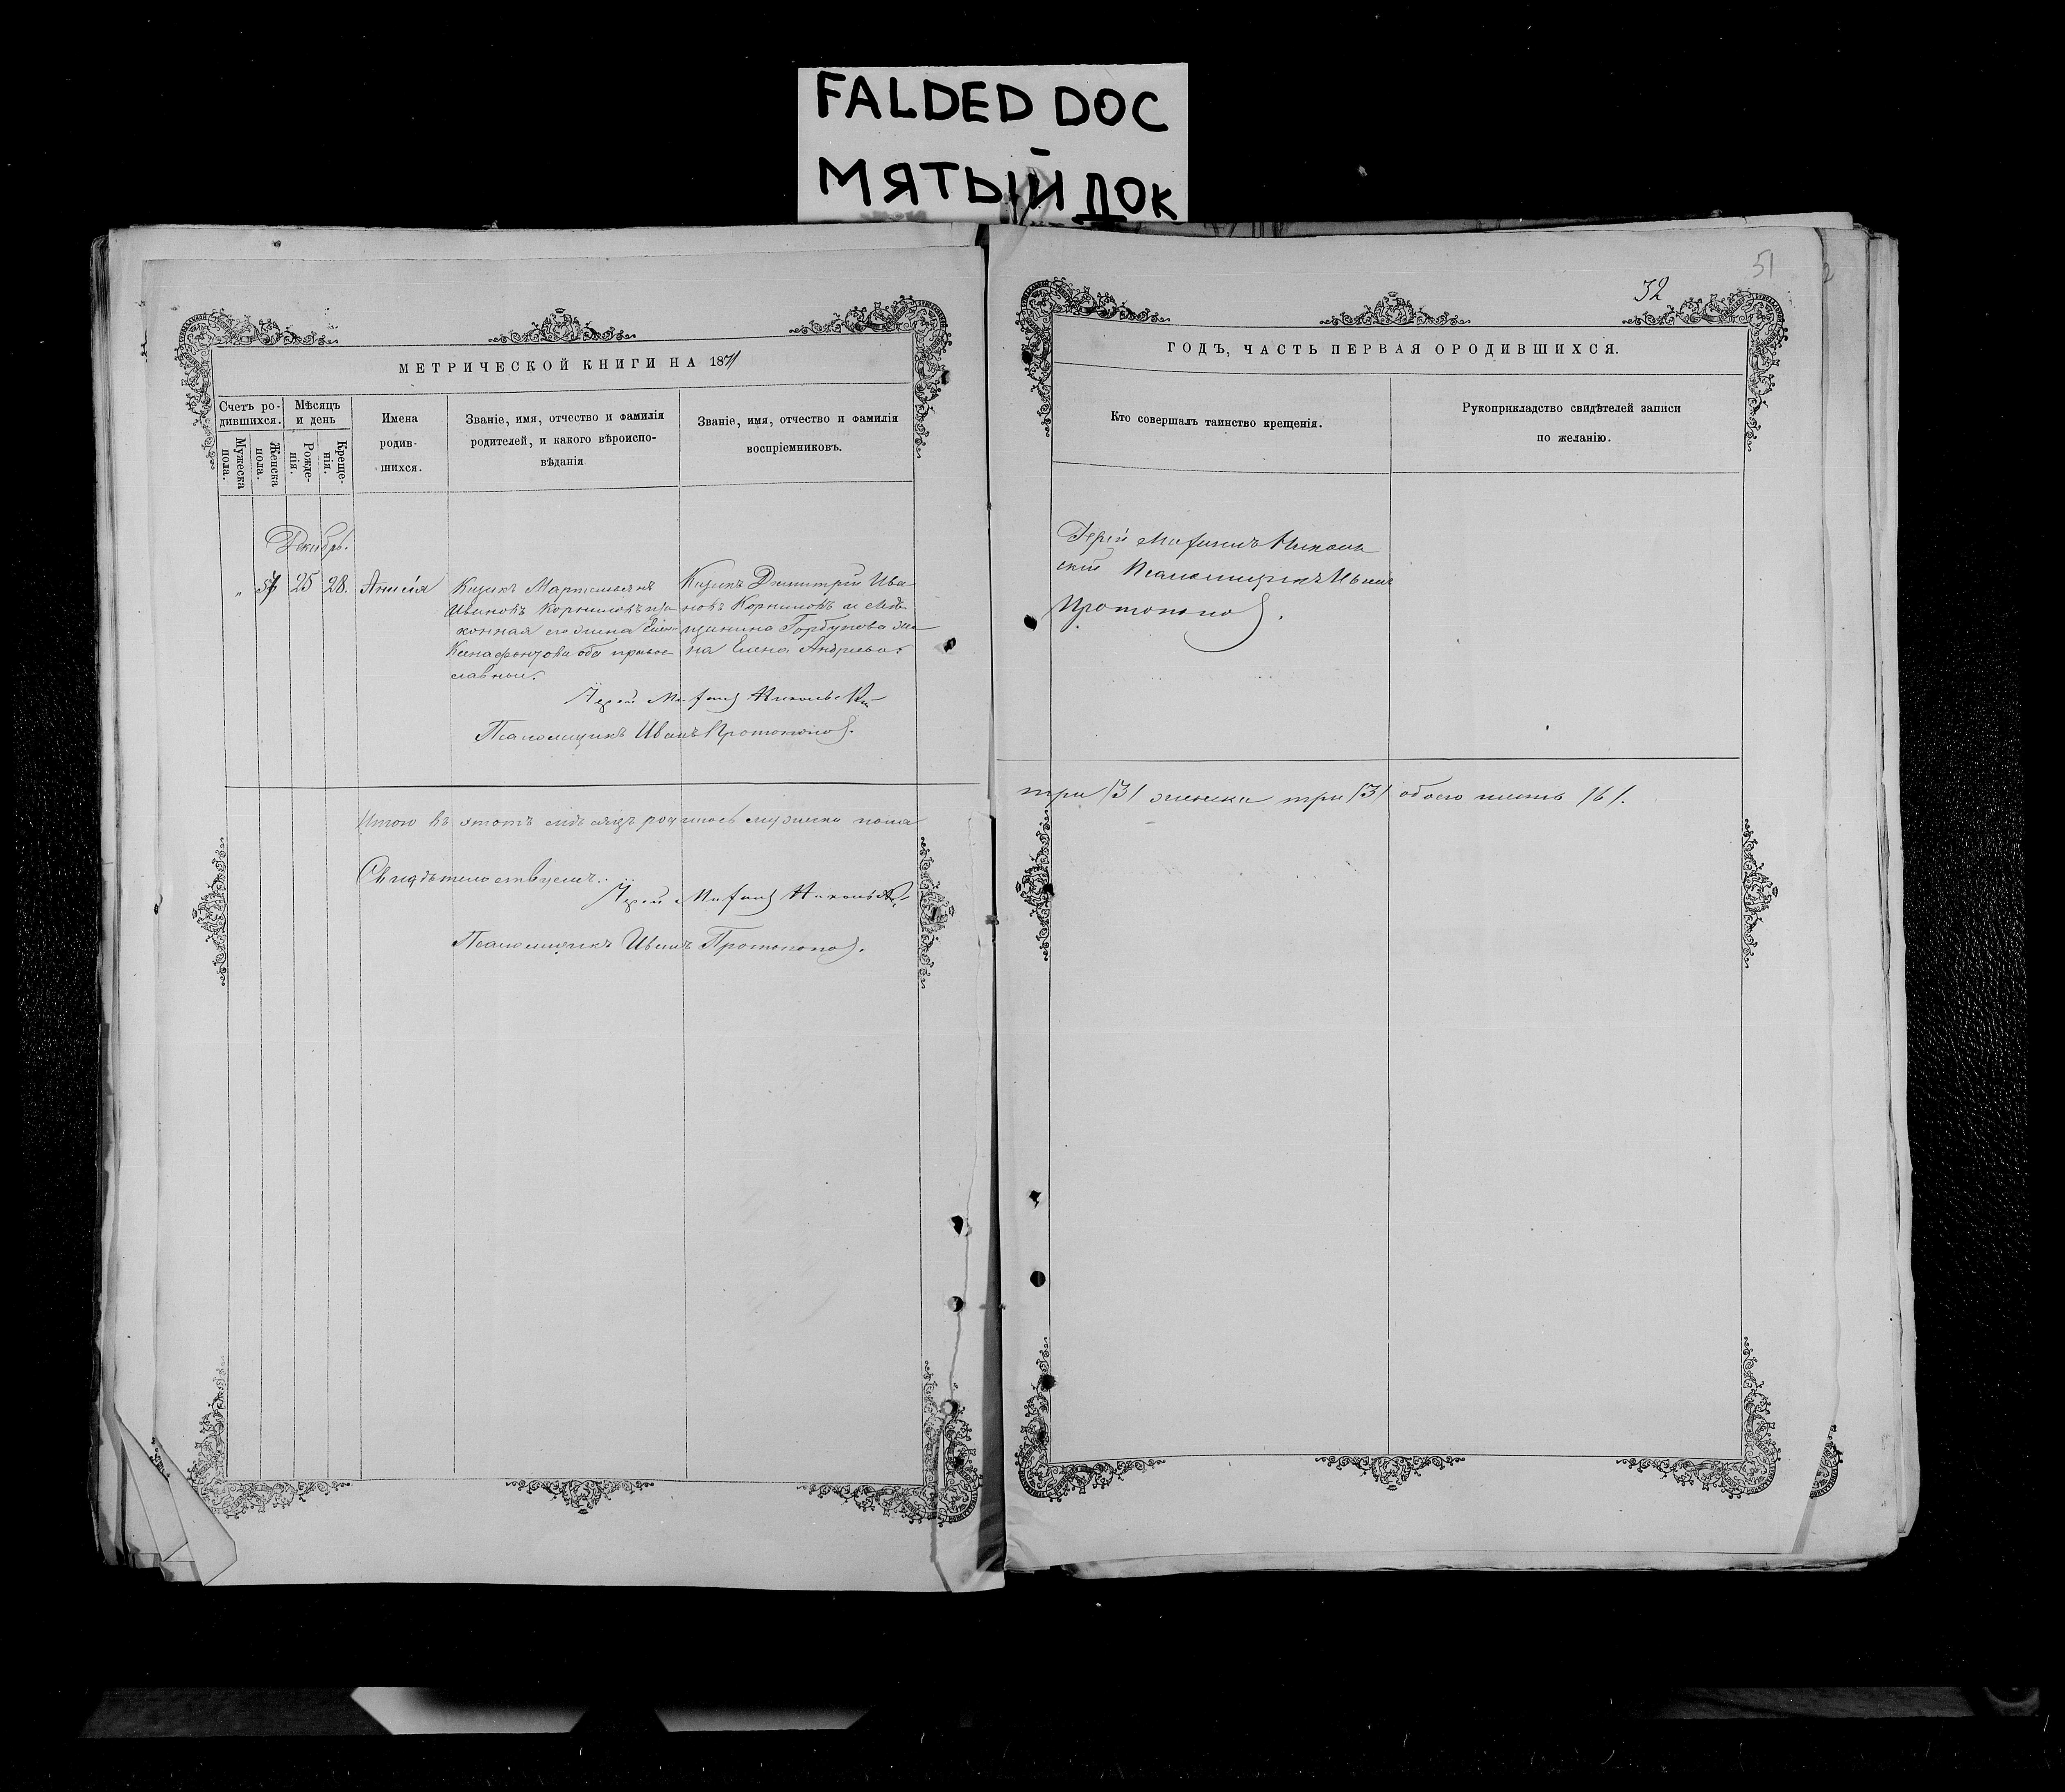 FALDED DOC
МЯТЫЙ ДОК
МЕТРИЧЕСКОЙ КНИГИ НА 1871
Счетъ ро-
дившихся.
Мужеска
пола.
Женска
пола.
Мѣсяцъ
и день
Рожде-
нія.
Креще-
нія.
Имена
родив-
шихся.
Званіе, имя, отчество и фамилія
родителей, и какого вѣроиспо-
вѣданія
Званіе, имя, отчество и фамилія
воспріемниковъ.
Декабрь.
25 28. Анисія
Казакъ Мартемьянъ
Ивановъ Корниловъ и за
конная его жена Елена
Ксенофонтова оба правос
лавные.
Казакъ Димитрій Ива
новъ Корниловъ и
Горбунова же
на Елена Андреева.
Іерей Митрофанъ Никольскій
Псаломщикъ Иванъ Протопопов.
Итого въ этотъ мѣсяцъ родилось мужска пола
Свидѣтельствуемъ:
Іерей Митрофанъ Никольскій
Псаломщикъ Иванъ Протопопов.
51
32
ГОДЪ, ЧАСТЬ ПЕРВАЯ ОРОДИВШИХСЯ.
Кто совершалъ таинство крещенія.
Рукоприкладство свидѣтелей записи
по желанію.
Іерей Митрофанъ Николь
скій Псаломщикъ Иванъ
Протопопов.
три /3/ женска три /3/ обоего шесть /6/.